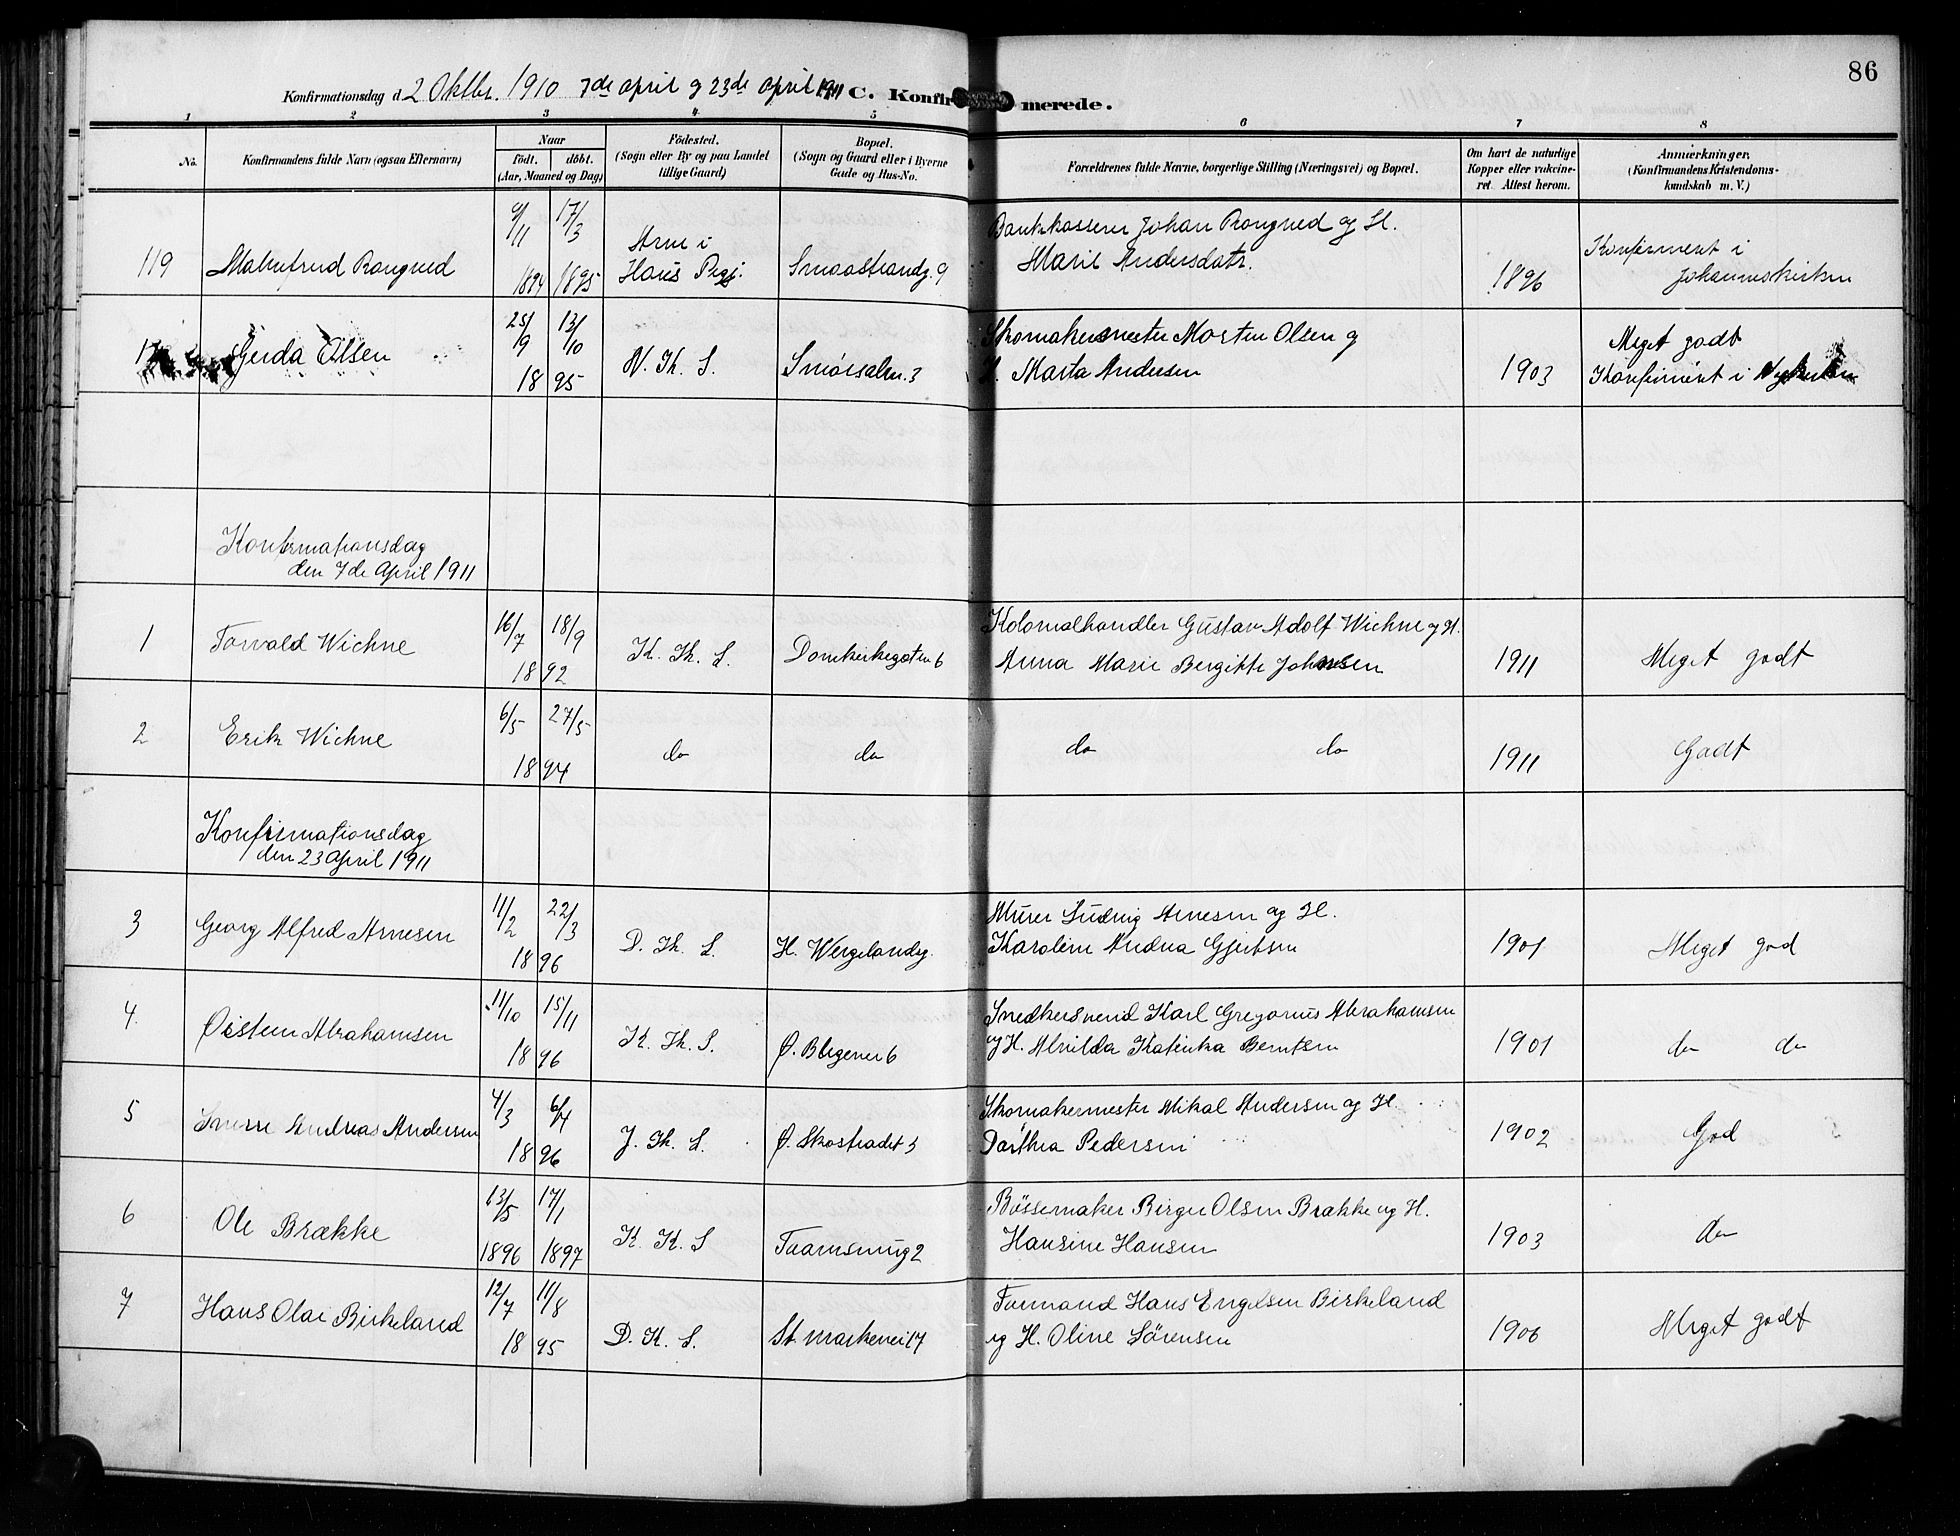 86
Konfirmationsdag d. 2 Oktbr. 1910 7de april og 23de april 1911 C. Konfirmerede.
1 2 3 4 5 6 7 8
No. Konfirmandens fulde Navn (ogsaa Efternavn) Naar födt. döbt. (Aar, Maaned og Dag)
Födested. (Sogn eller By og paa Landet tillige Gaard)
Bopæl. (Sogn og Gaard eller i Byerne Gade og Hus-No.
Forældrenes fulde Navne, borgerlige Stilling (Næringsvei) og Bopæl.
Om havt de naturlige Kopper eller vakcineret. Attest herom.
Anmærkninger. (Konfirmandens Kristendomskundskab m. V.)
119 Malmfrid Rongved 9/11 1894 17/3 1895 Arne i Haus Pgj. Smaastrandg. 9
Bankkasserer Johan Rongved og H.
Marie Andersdatr. 1896 Konfirmert i Johanneskirken
Gerda Olsen 25/9 13/10 1895 N. Th. S. Smörsalm. 3
Skomakermester Morten Olsen og
H. Marta Andersen 1903 Meget godt
Konfirmert i Nykirken
Konfirmationsdag
den 7de April 1911
1 Torvald Wichne 16/7 18/9 1892 K. Th. S. Domkirkegaten 6
Kolonialhandler Gustav Adolf Wichne og H.
Anna Marie Bergitte Johnsen 1911 Meget godt
2 Erik Wichne 6/5 27/5 1894 do do do do 1911 Godt
Konfirmationsdag
den 23 April 1911
3 Georg Alfred Arnesen 11/2 22/3 1896 D. Th. S. H. Wergelandsg.
Murer Ludvig Arnesen og H.
Karoline Andrea Gjertsen 1901 Meget god
4 Øistein Abrahamsen 11/10 15/11 1896 K. Th. S. Ø. Blegevei 6
Snedkersvend Karl Gregorius Abrahamsen
og H. Alvilda Katinka Berntsen 1901 do do
5 Sverre Andreas Andersen 4/3 6/4 1896 J. Th. S. Ø. Skostrædet 5
Skomakermester Mikal Andersen og H.
Dorthea Pedersen 1902 God
6 Ole Brække 13/5 1896 17/1 1897 K. K. S Taarnsmug 2
Bössemaker Birger Olsen Brække og H.
Hansine Hansen 1903 do
7 Hans Olai Birkeland 12/7 11/8 1895 D. K. S. St. Markevei 17
Formand Hans Engelsen Birkeland
og H. Oline Sörensen 1906 Meget godt